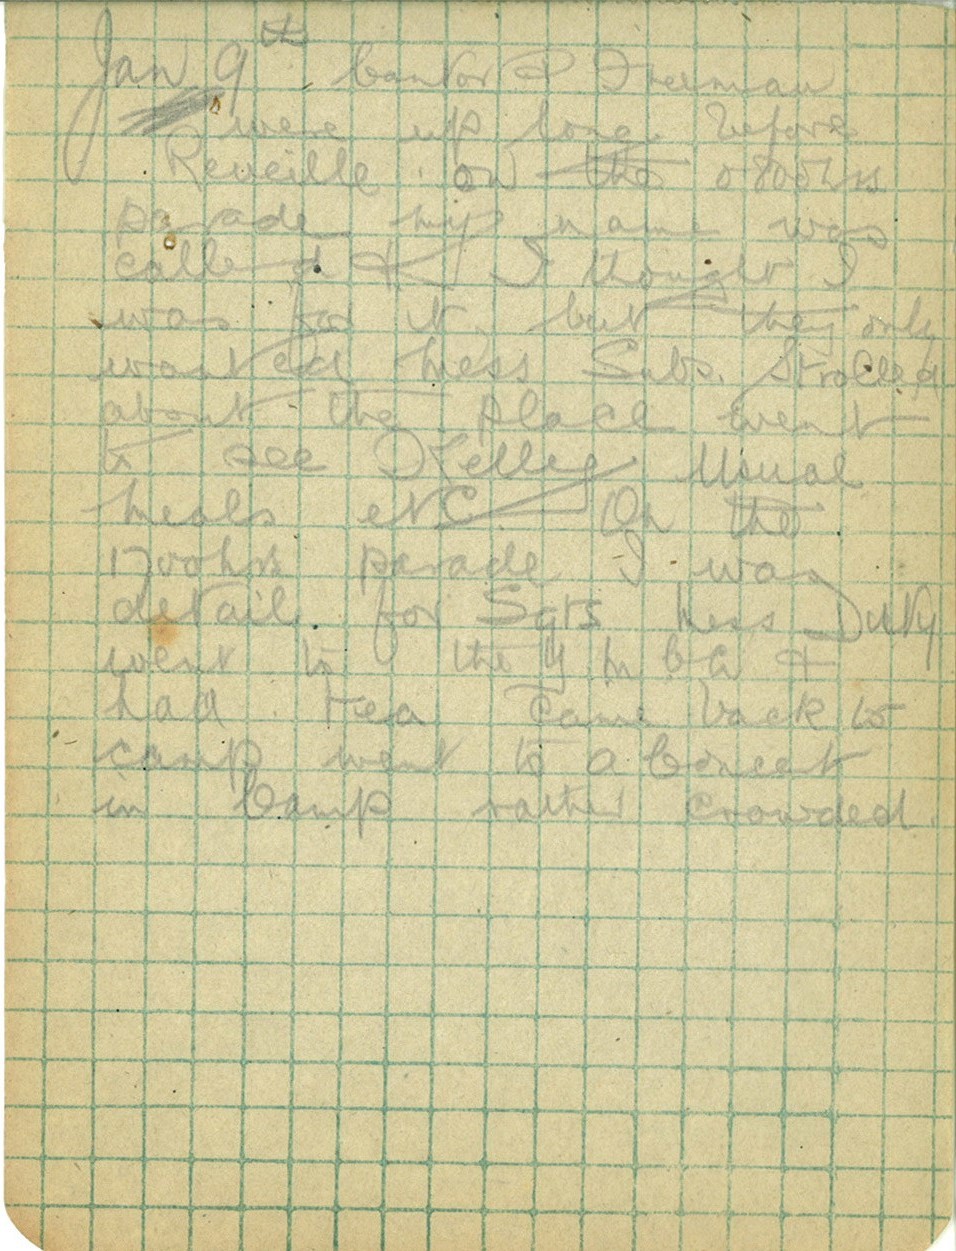 Jan 9th Cantor & Freeman
were up long before
Reveille on the 0800hrs
parade my name was
called & I thought I
was for it, but they only
wanted Mess Subs. Strolled
about the place went
to see Kelley Usual
meals etc. On the
1700hrs parade I was
detail for Sgts Mess Duty
went to the Y M C A &
had tea came back to
camp went to a Concert
in Camp rather crowded.